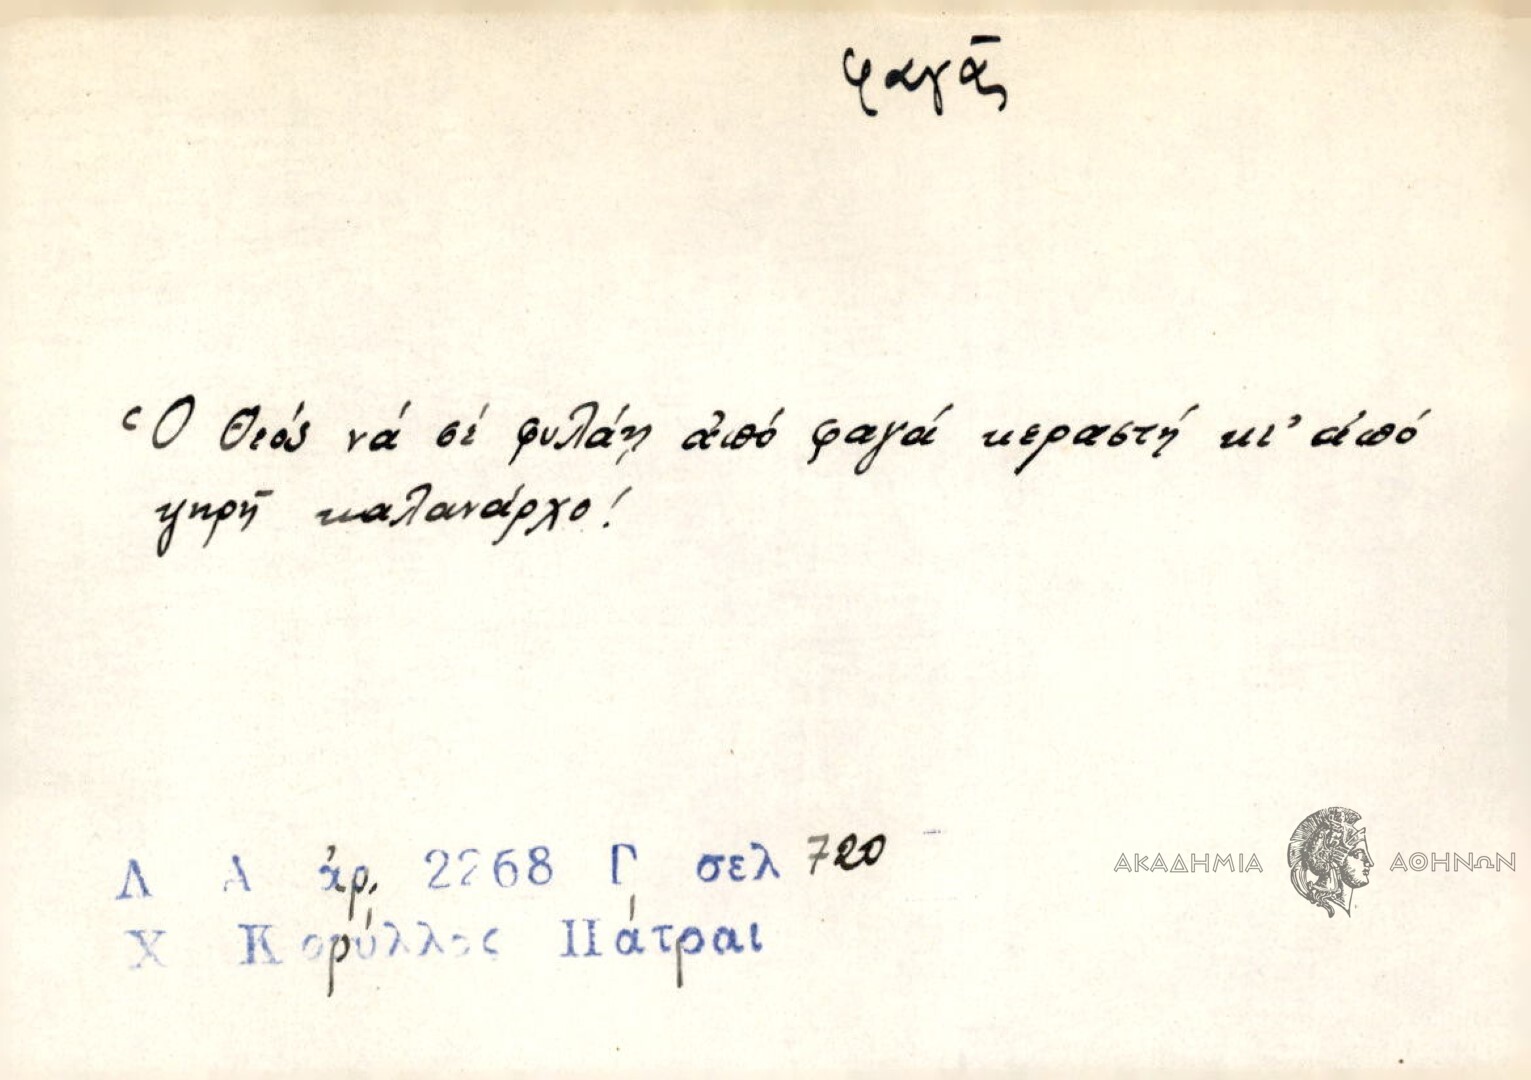 φαγᾶς
Ὁ Θεός νά σέ φυλάῃ ἀπό φαγά κεραστή κι' ἀπό
ψηρῆ καλανάρχο!
Λ Α ἀρ. 2268 Γ σελ 720
Χ Κορύλλος Πάτραι
ΑΚΑΔΗΜΙΑ ΑΘΗΝΩΝ